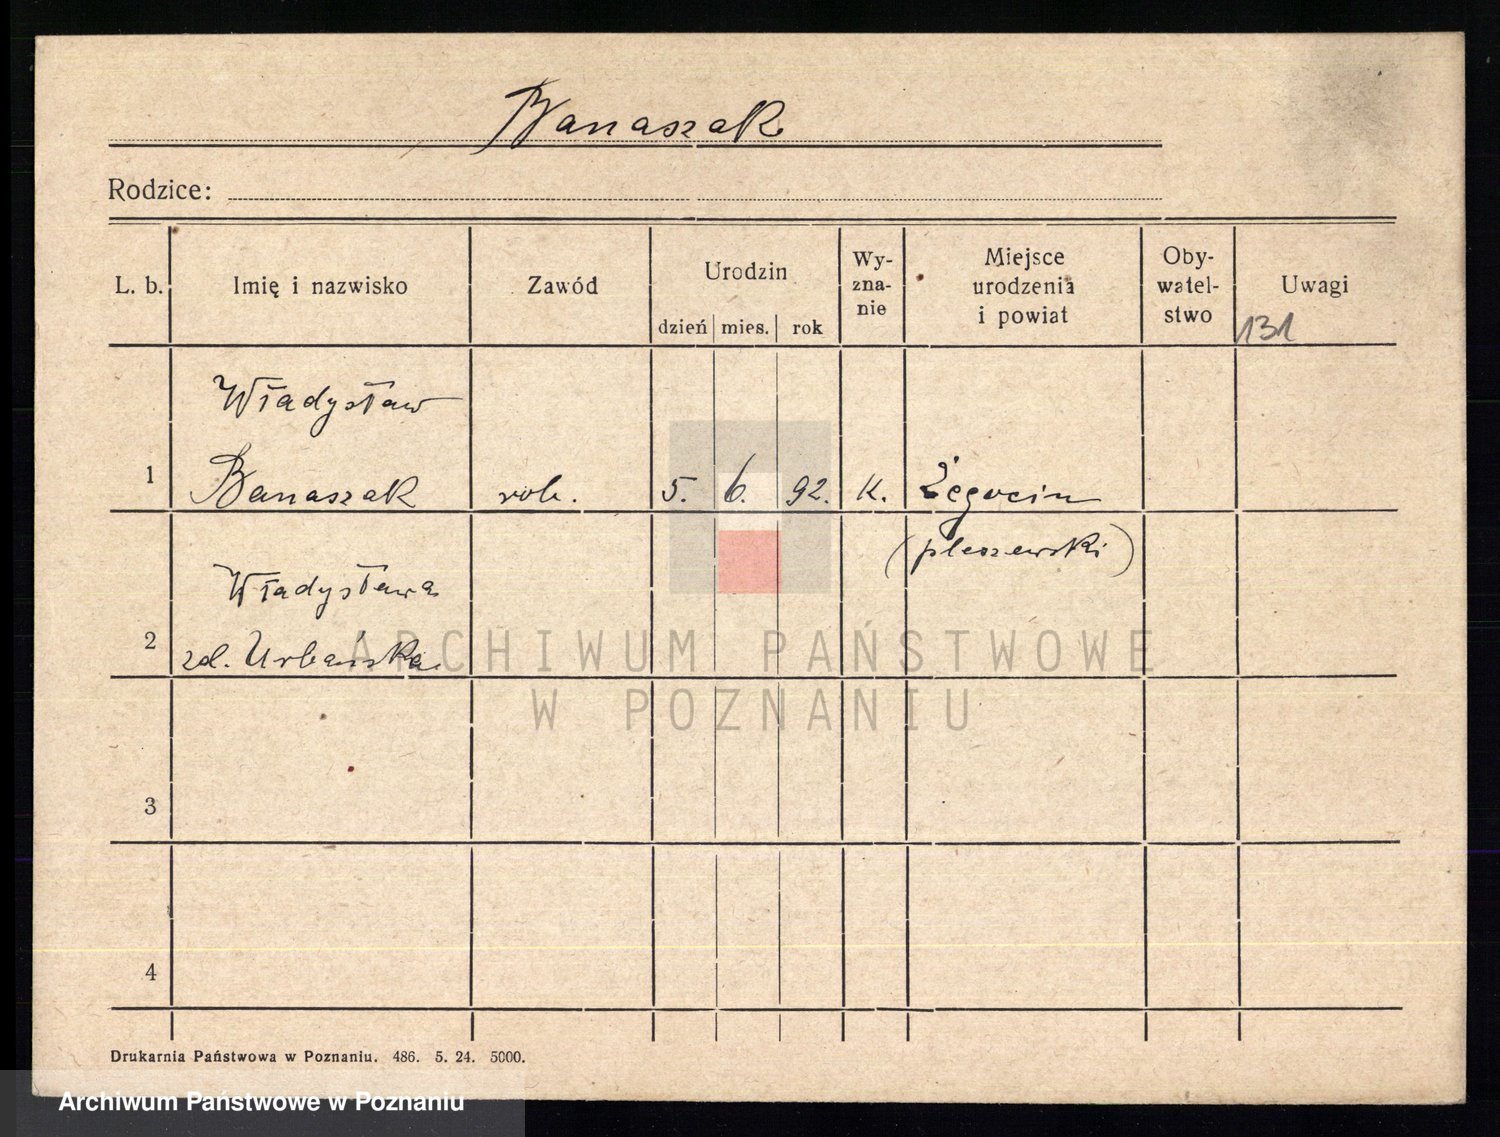 Banaszak
Rodzice:
L. b.
Imię i nazwisko
Zawód
Urodzin
dzień mies. rok
Wy-
zna-
nie
Miejsce
urodzenia
i powiat
Oby-
watel-
stwo
Uwagi
131
Władysław
1 Banaszak rob. 5. 6. 92. K. Żegocin
(pleszewski)
Władysława
2 zd. Urbańska
3
4
Drukarnia Państwowa w Poznaniu. 486. 5. 24. 5000.
ARCHIWUM PAŃSTWOWE
W POZNANIU
Archiwum Państwowe w Poznaniu